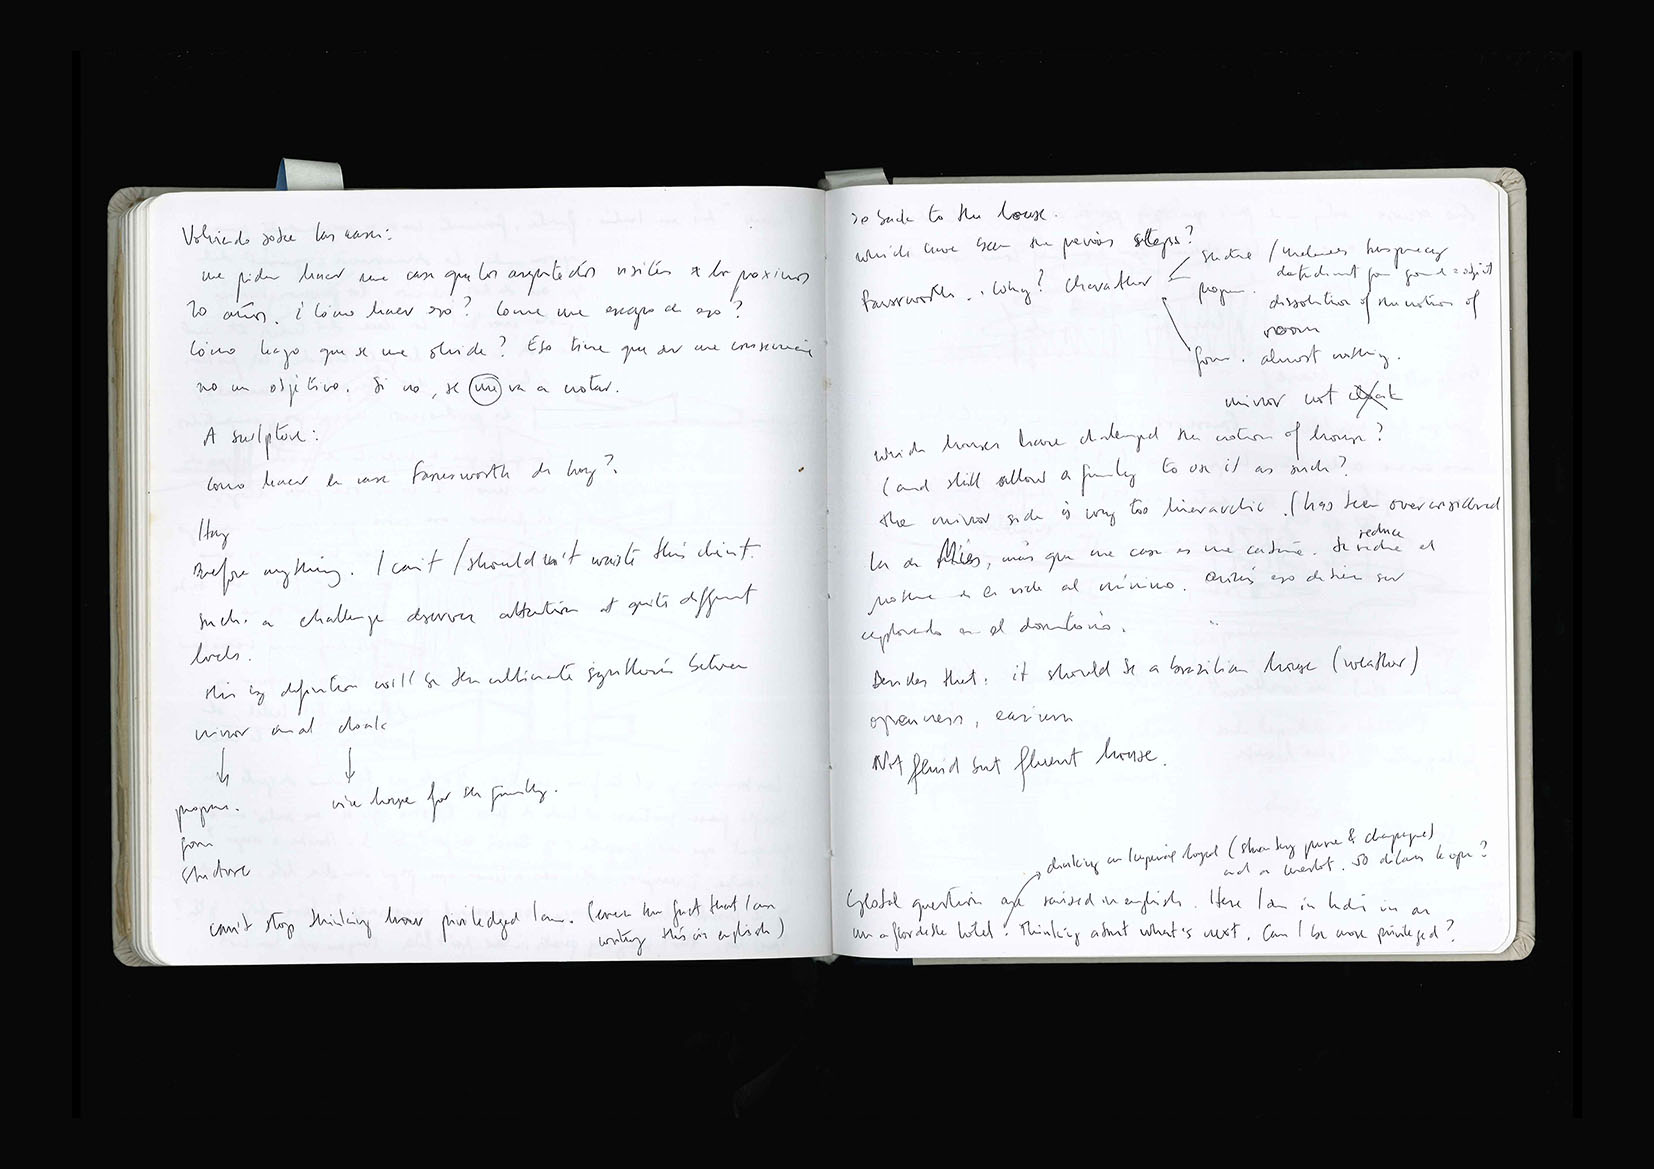 Volviendo sobre las casas:
me piden hacer una casa que los arquitectos visiten x los proximos
20 años. ¿Cómo hacer eso? Como me escapo de eso?
Cómo hago que se me olvide? Eso tiene que ser una consecuencia
no un objetivo. Si no, se me va a notar.
A sculpture:
como hacer la casa Farnsworth de hoy?
Hay
Before anything. I can't / shouldn't waste this client.
such a challenge deserves attention at quite different
levels.
this by definition will be the ultimate synthesis between
mirror and cloak
program. nice house for the family.
form
structure
can't stop thinking how priviledged I am. (even the fact that I am
writing this in english)
so back to the house.
which have been the previous steps?
Farnsworth. Why? character
structure /
program. detachment from ground = object
dissolution of the notion of
room
form. almost nothing.
mirror not cloak
which houses have challenged the notion of house?
(and still allow a family to use it as such?
the mirror side is way too hierarchic. (has been overconsidered
La de Mies, más que una casa es una cabina. Se reduce el
reduce
de la vida al mínimo. Quizás eso debiera ser
explorado en el dormitorio.
Besides that. it should be a brazilian house (weather)
openness,
Not fluid but fluent house.
drinking an imperial loyal (
and a 
Global question are raised in english. Here I am in in an
in a hotel. Thinking about what's next. Can I be more privileged?